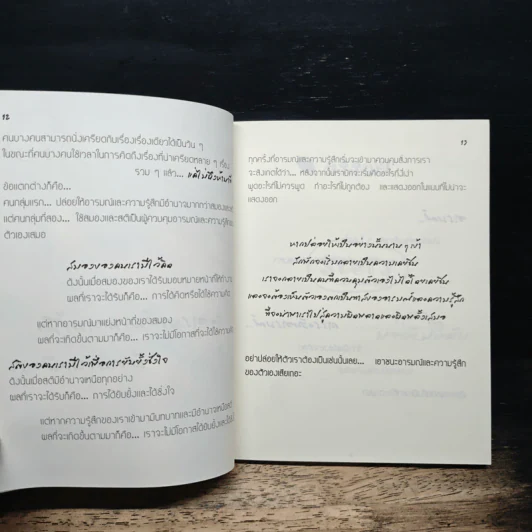 12
คนบางคนสามารถนั่งเครียดกับเรื่องเรื่องเดียวได้เป็นวัน ๆ
ในขณะที่คนบางคนใช้เวลาในการคิดถึงเรื่องที่น่าเครียดหลาย ๆ เรื่อง
รวม ๆ แล้ว... แค่ไม่ถึง
ข้อแตกต่างก็คือ...
คนกลุ่มแรก... ปล่อยให้อารมณ์และความรู้สึกมีอำนาจมากกว่าสมองและ
แต่คนกลุ่มที่สอง... ใช้สมองและสติเป็นผู้ควบคุมอารมณ์และความรู้สึก
ตัวเองเสมอ
สมองของคนเรามีไว้คิด
ดังนั้นเมื่อสมองของเราได้รับมอบหมายหน้าที่ให้
ผลที่เราจะได้รับก็คือ... การได้คิดหรือได้ใช้ความ
แต่หากอารมณ์มาแย่งหน้าที่ของสมอง
ผลที่จะเกิดขึ้นตามมาก็คือ... เราจะไม่มีโอกาสได้ใช้ความ
สติของคนเรามีไว้เพื่อการยับยั้งชั่งใจ
ดังนั้นเมื่อสติมีอำนาจเหนือทุกอย่าง
ผลที่เราจะได้รับก็คือ... การได้ยับยั้งและได้ชั่งใจ
แต่หากความรู้สึกของเราเข้ามามีบทบาทและมีอำนาจเหนือสติ
ผลที่จะเกิดขึ้นตามมาก็คือ... เราจะไม่มีโอกาสได้ยับยั้งและ
13
ทุกครั้งที่อารมณ์และความรู้สึกเริ่มจะเข้ามาควบคุมสั่งการเรา
จะสังเกตได้ว่า... หลังจากนั้นเรามักจะเริ่มคิดอะไรที่ไม่น่า
พูดอะไรที่ไม่ควรพูด ทำอะไรที่ไม่ถูกต้อง และแสดงออกในแบบที่ไม่น่าจะ
แสดงออก
หากปล่อยให้เป็นอย่างนั้นนาน ๆ เข้า
สักพักจะเริ่มกลายเป็นความเคยชิน
เราจะกลายเป็นคนที่ควบคุมตัวเองไม่ได้โดยเคยชิน
และจะต้องเห็นตัวเองตกเป็นทาสของอารมณ์และความรู้สึก
ที่จะนำพาเราไปสู่ความผิดพลาดและผิดพลั้งเสมอ
อย่าปล่อยให้ตัวเราต้องเป็นเช่นนั้นเลย... เอาชนะอารมณ์และความรู้สึก
ของตัวเองเสียเถอะ